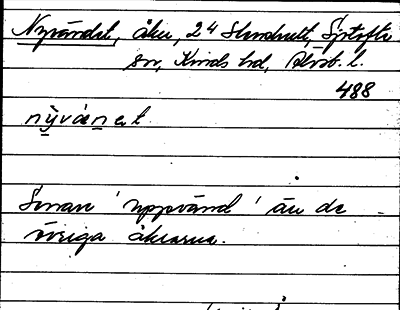 Nyvändet, åker, 24 Slamhult, Sjötofta
sn, Kinds hd, Älvsb. l.
488
nỳvánət
Senare 'uppvänd' än de
övriga åkrarna.